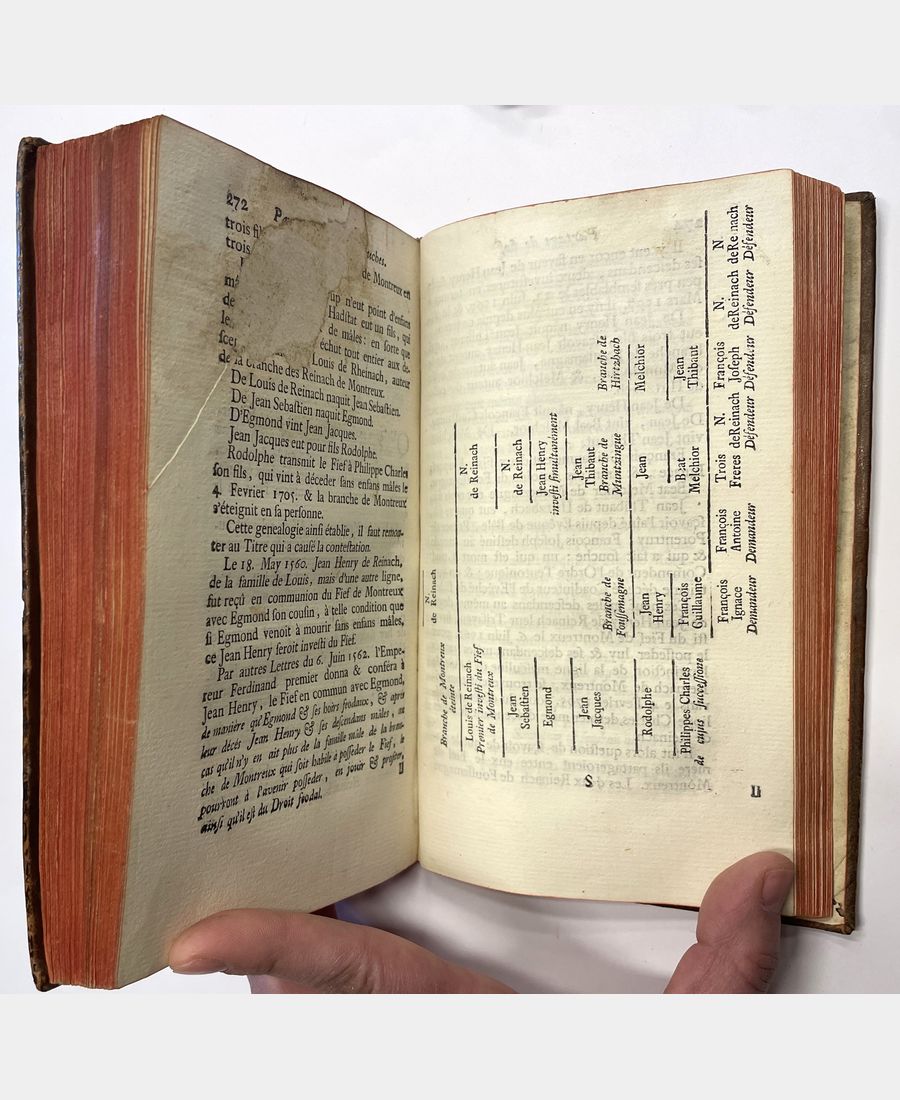 272
trois
trois
de Montreux en
n'eut point d'enfans
Hadstat eut un fils, qui
de mâles: en sorte que
échut tout entier aux de-
Louis de Rheinach, auteur
de la branche des Reinach de Montreux.
De Louis de Reinach naquit Jean Sebastien.
De Jean Sebastien naquit Egmond.
D'Egmond vint Jean Jacques.
Jean Jacques eut pour fils Rodolphe.
Rodolphe transmit le Fief à Philippe Charles
son fils, qui vint à déceder sans enfans mâles le
4. Fevrier 1705. & la branche de Montreux
s'éteignit en sa personne.
Cette genealogie ainsi établie, il faut remon-
ter au Titre qui a causé la contestation.
Le 18. May 1560. Jean Henry de Reinach,
de la famille de Louis, mais d'une autre ligne,
fut reçû en communion du Fief de Montreux
avec Egmond son cousin, à telle condition que
si Egmond venoit à mourir sans enfans mâles,
ce Jean Henry seroit investi du Fief.
Par autres Lettres du 6. Juin 1562. l'Empe-
reur Ferdinand premier donna & conféra à
Jean Henry, le Fief en commun avec Egmond,
de maniére qu'Egmond & ses hoirs féodaux, & après
leur décès Jean Henry & ses descendans mâles, au
cas qu'il n'y en ait plus de la famille mâle de la bran-
che de Montreux qui soit habile à posseder le Fief, le
pourront à l'avenir posseder, en jouir & profiter,
ainsi qu'il est du Droit féodal.
N.
de Reinach
Branche de Montreux
éteinte
Louis de Reinach
Premier investi du Fief
de Montreux
N.
de Reinach
Jean
Sebastien
N.
de Reinach
Egmond
Jean Henry
investi simultanément
Jean
Jacques
Jean
Thibaut
Branche de
Foussemagne
Branche de
Muntzingue
Branche de
Hirtzbach
Rodolphe
Jean
Henry
Jean
Melchior
Philippes Charles
de cujus successione
François
Guillaume
Beat
Melchior
Jean
Thibaut
François
Ignace
Demandeur
François
Antoine
Demandeur
Trois
Freres
N.
deReinach
Défendeur
François
Joseph
Défendeur
N.
deReinach
Défendeur
N
deRe nach
Défendeur
S
II